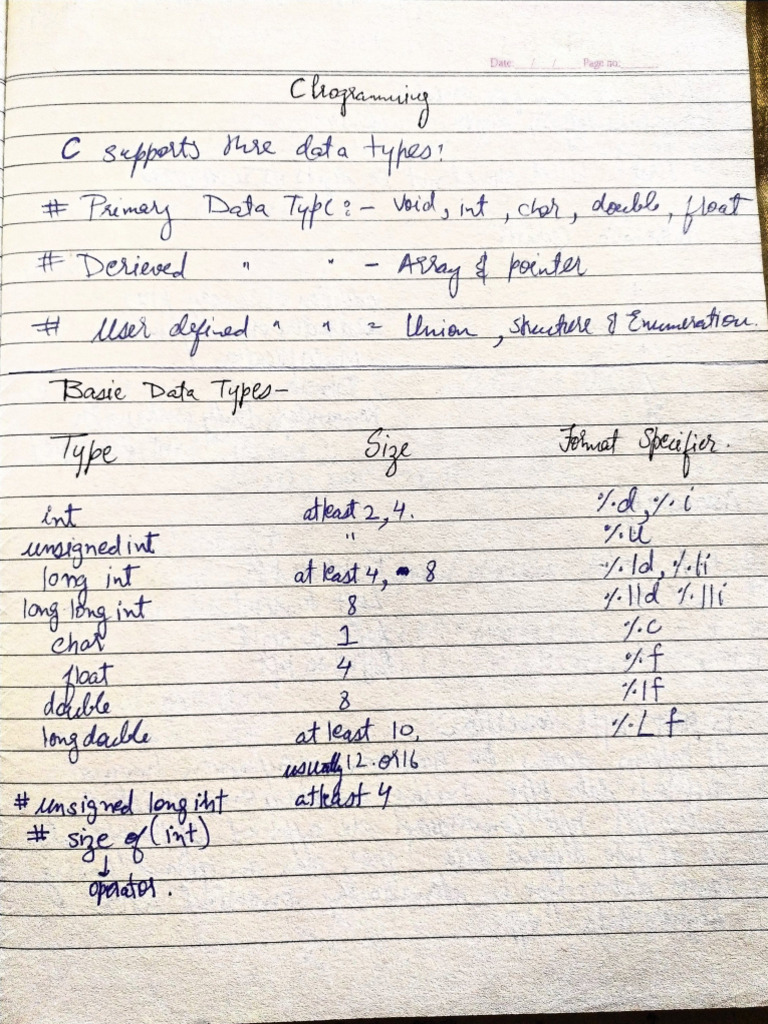 Date: / / Page no:
C Programming
C supports three data types:
# Primary Data Type:- Void, int, char, double, float
# Derieved " " - Array & pointer
# User defined " " = Union, structure & Enumeration.
Basic Data Types-
Type Size Format Specifier.
int atleast 2, 4. %d, %i
unsigned int " %u
long int at least 4, 8 %ld, %li
long long int 8 %lld %lli
char 1 %c
float 4 %f
double 8 %lf
long double at least 10, %Lf
usually 12 or 16
# unsigned long int atleast 4
# size of (int)
↓
operator.